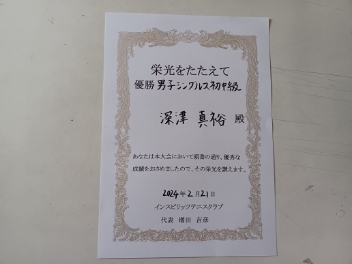 栄光をたたえて
優勝 男子シングルス初中級
深澤 真裕 殿
あなたは本大会において頭書の通り、優秀な
成績をおさめましたので、その栄光を讃えます。
2024年2月21日
インスピリッツテニスクラブ
代表 増田 吉彦